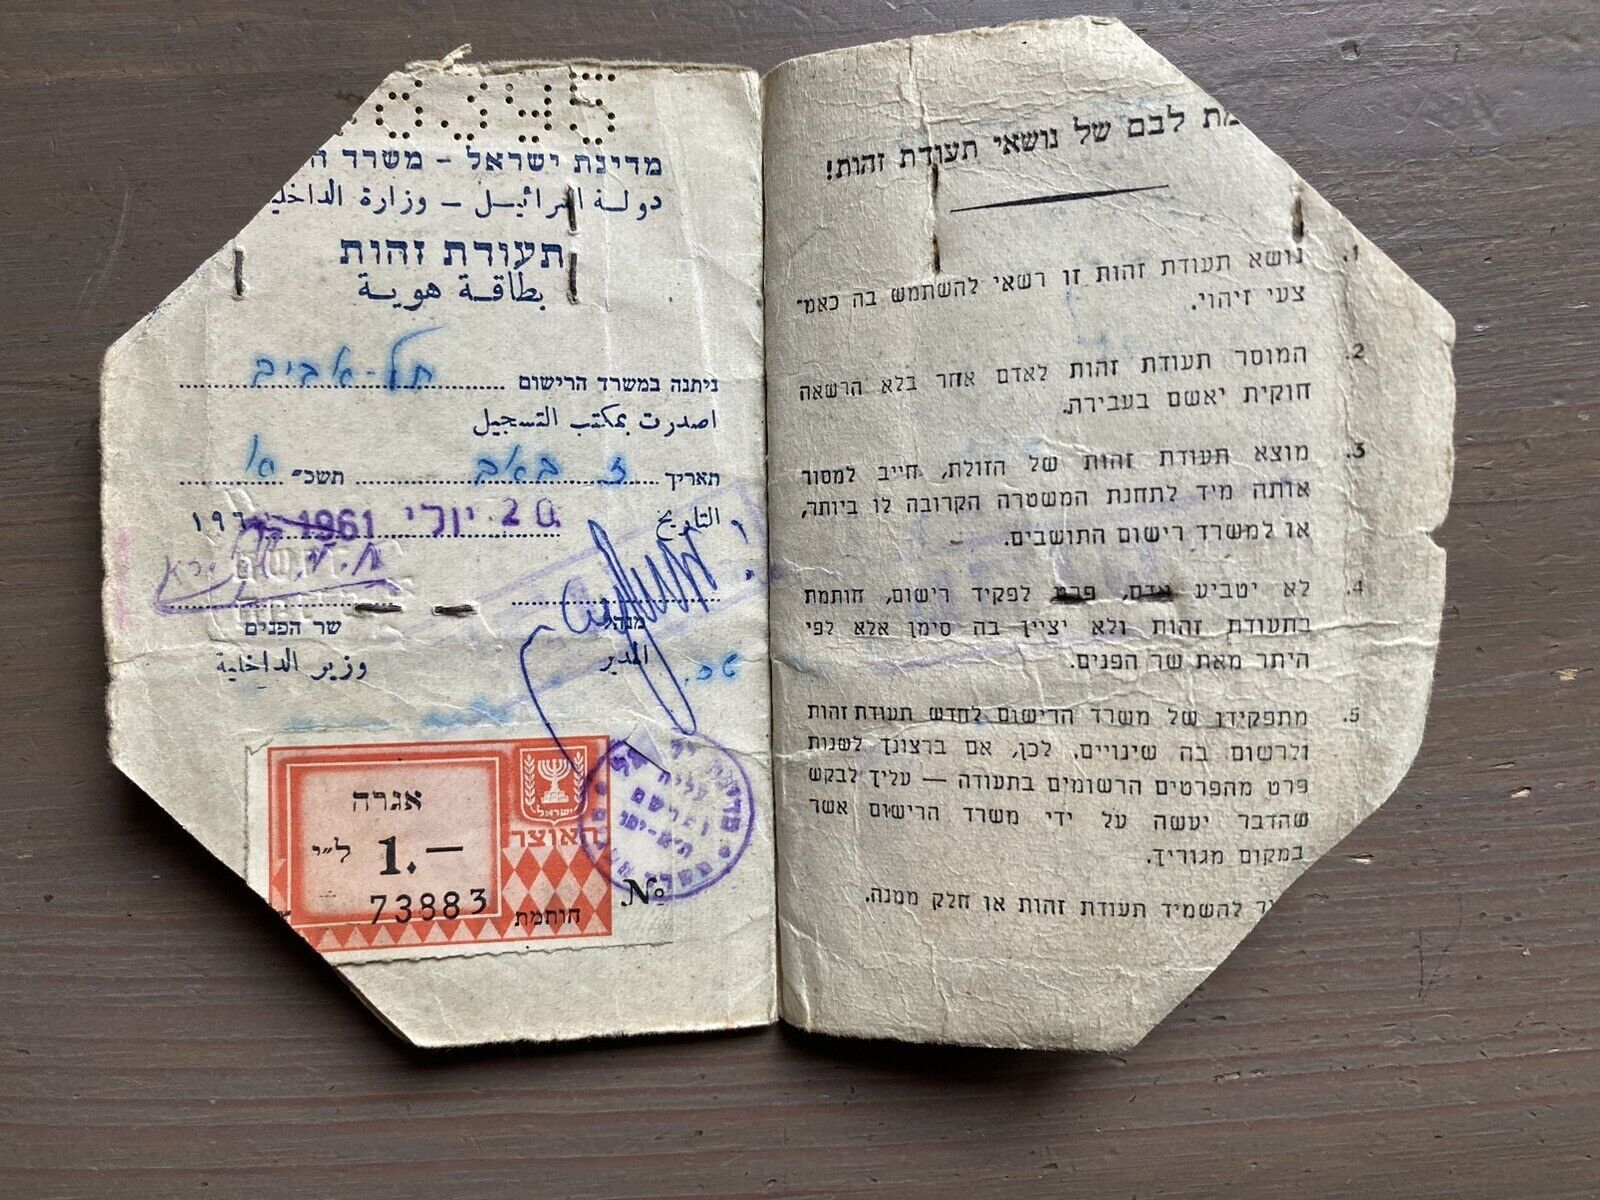 8395
מדינת ישראל – משרד
دولة اسرائيل – وزارة الداخلية
תעודת זהות
بطاقة هوية
ניתנה במשרד הרישום תל-אביב
اصدرت بمكتب التسجيل
תאריך ז באב תשכ״ א
التاريخ 20. יולי 1961 ١٩٦
מנהל
שר הפנים
المدير
وزير الداخلية
האוצר
ישראל
אגרה
1.— ל״י
73883
חותמת
No
לבם של נושאי תעודת זהות!
1. נושא תעודת זהות זו רשאי להשתמש בה כאמ־
צעי זיהוי.
2. המוסר תעודת זהות לאדם אחר בלא הרשאה
חוקית יאשם בעבירה.
3. מוצא תעודת זהות של הזולת, חייב למסור
אותה מיד לתחנת המשטרה הקרובה לו ביותר,
או למשרד רישום התושבים.
4. לא יטביע אדם, פרט לפקיד רישום, חותמת
בתעודת זהות ולא יציין בה סימן אלא לפי
היתר מאת שר הפנים.
5. מתפקידן של משרד הרישום לחדש תעודת זהות
ולרשום בה שינויים. לכן, אם ברצונך לשנות
פרט מהפרטים הרשומים בתעודה — עליך לבקש
שהדבר יעשה על ידי משרד הרישום אשר
במקום מגוריך.
להשמיד תעודת זהות או חלק ממנה.